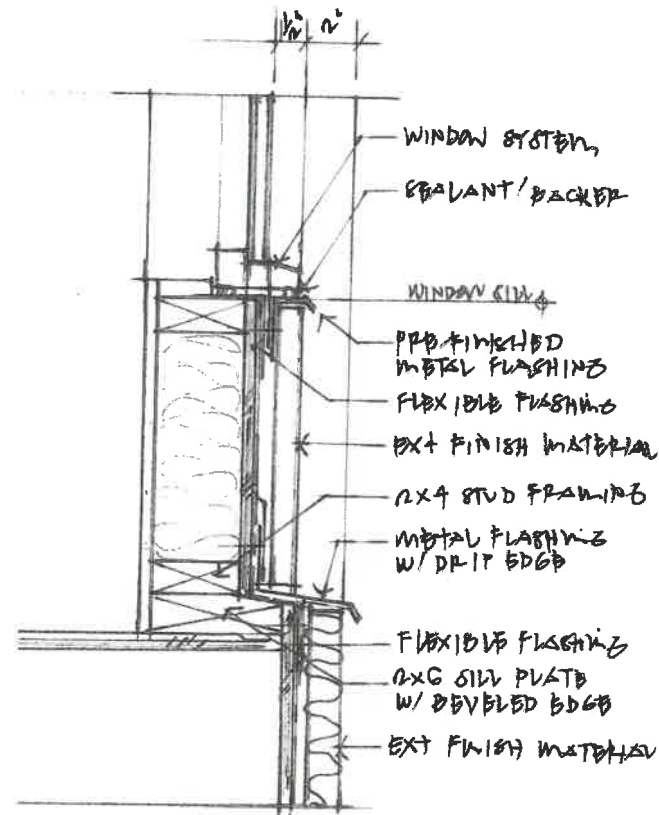 1/2" 2"
WINDOW SYSTEM
SEALANT/BACKER
WINDOW SILL
PRE-FINISHED
METAL FLASHING
FLEXIBLE FLASHING
EXT FINISH MATERIAL
2X4 STUD FRAMING
METAL FLASHING
W/ DRIP EDGE
FLEXIBLE FLASHING
2X6 SILL PLATE
W/ BEVELED EDGE
EXT FINISH MATERIAL